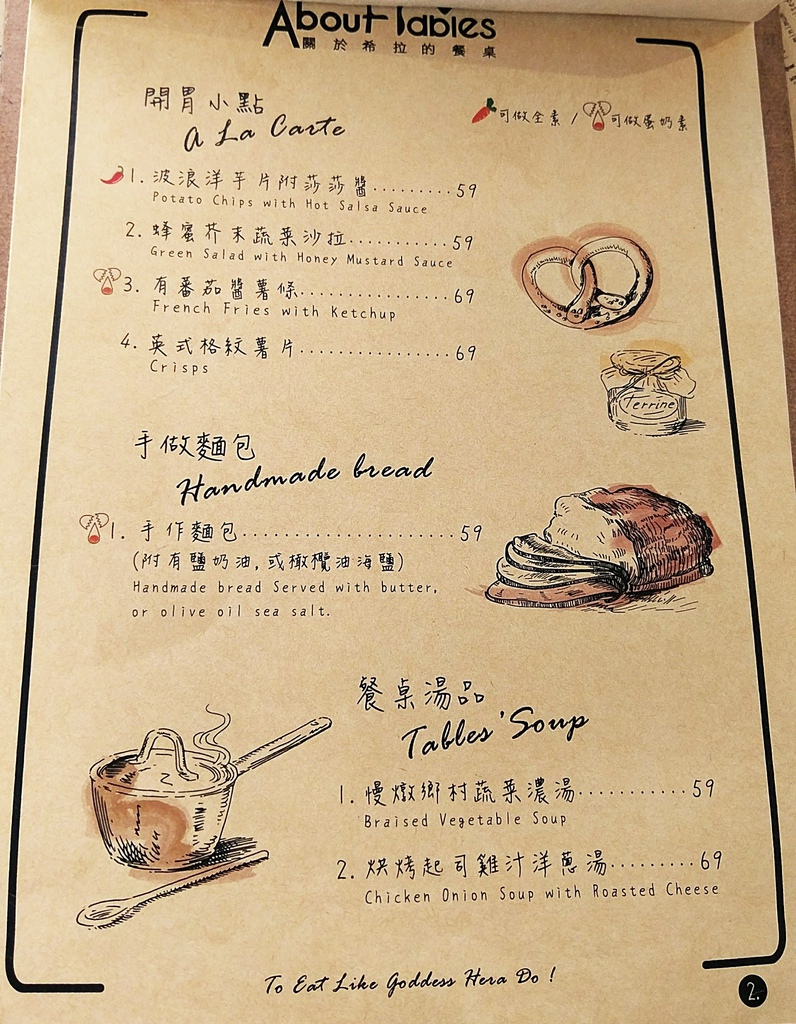 About Tables
關於希拉的餐桌
開胃小點
A La Carte
可做全素 / 可做蛋奶素
1. 波浪洋芋片附莎莎醬.........59
Potato Chips with Hot Salsa Sauce
2. 蜂蜜芥末蔬菜沙拉...........59
Green Salad with Honey Mustard Sauce
3. 有番茄醬薯條................69
French Fries with Ketchup
4. 英式格紋薯片................69
Crisps
Terrine
手做麵包
Handmade bread
1. 手作麵包......................59
(附有鹽奶油,或橄欖油海鹽)
Handmade bread Served with butter,
or olive oil sea salt.
餐桌湯品
Tables' Soup
1. 慢燉鄉村蔬菜濃湯...........59
Braised Vegetable Soup
2. 烘烤起司雞汁洋蔥湯.........69
Chicken Onion Soup with Roasted Cheese
To Eat Like Goddess Hera Do !
2.